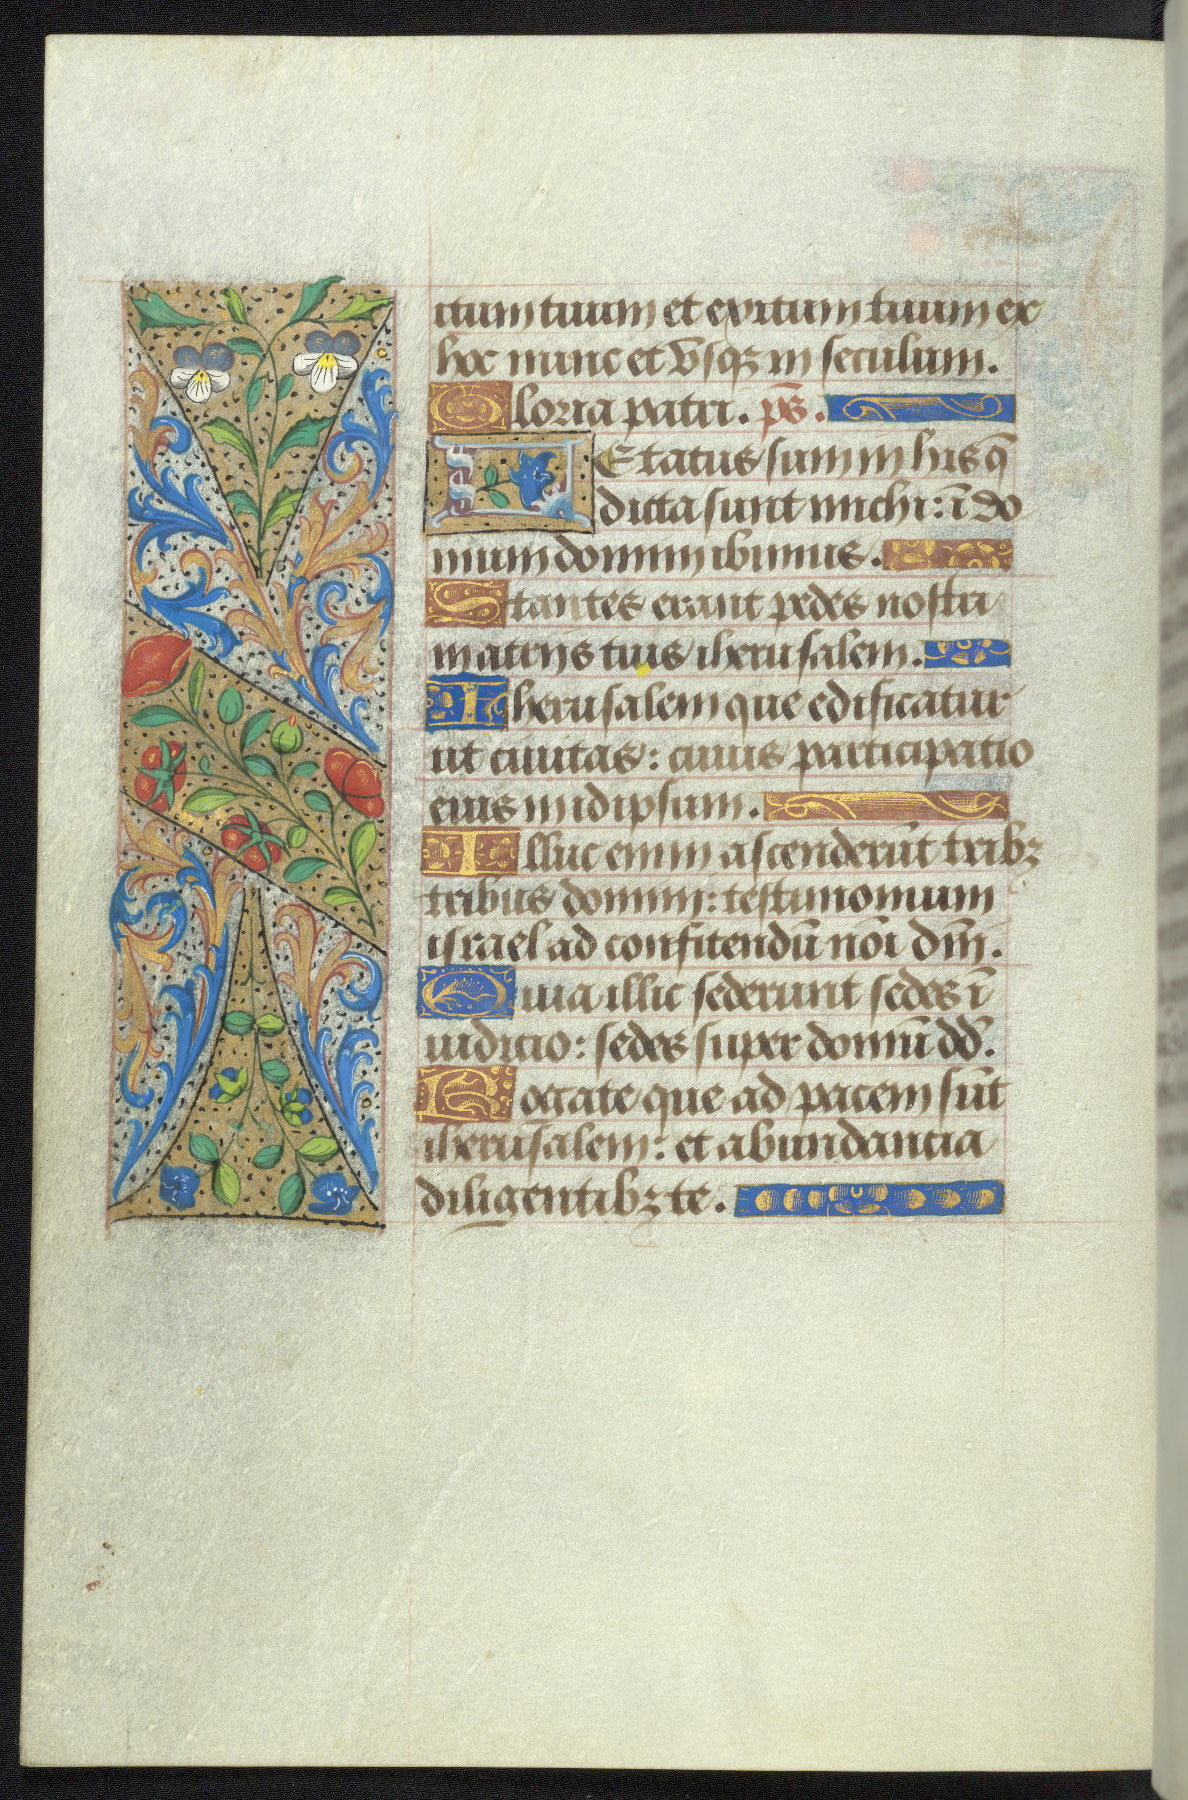 itum tuum et exitum tuum ex
hoc nunc et vsqꝫ in seculum.
Gloria patri. ps̄.
LEtatus sum in his q̄
dicta sunt michi: ī do
mum domini ibimus.
Stantes erant pedes nostri
in atrijs tuis iherusalem.
Iherusalem que edificatur
ut ciuitas: cuius participatio
eius in idipsum.
Illuc enim ascenderūt tribꝫ
tribus domini: testimonium
israel ad confitendū nōi dn̄i.
Quia illic sederunt sedes ī
iudicio: sedes super domū dd̄.
Rogate que ad pacem sūt
iherusalem: et abundancia
diligentibꝫ te.